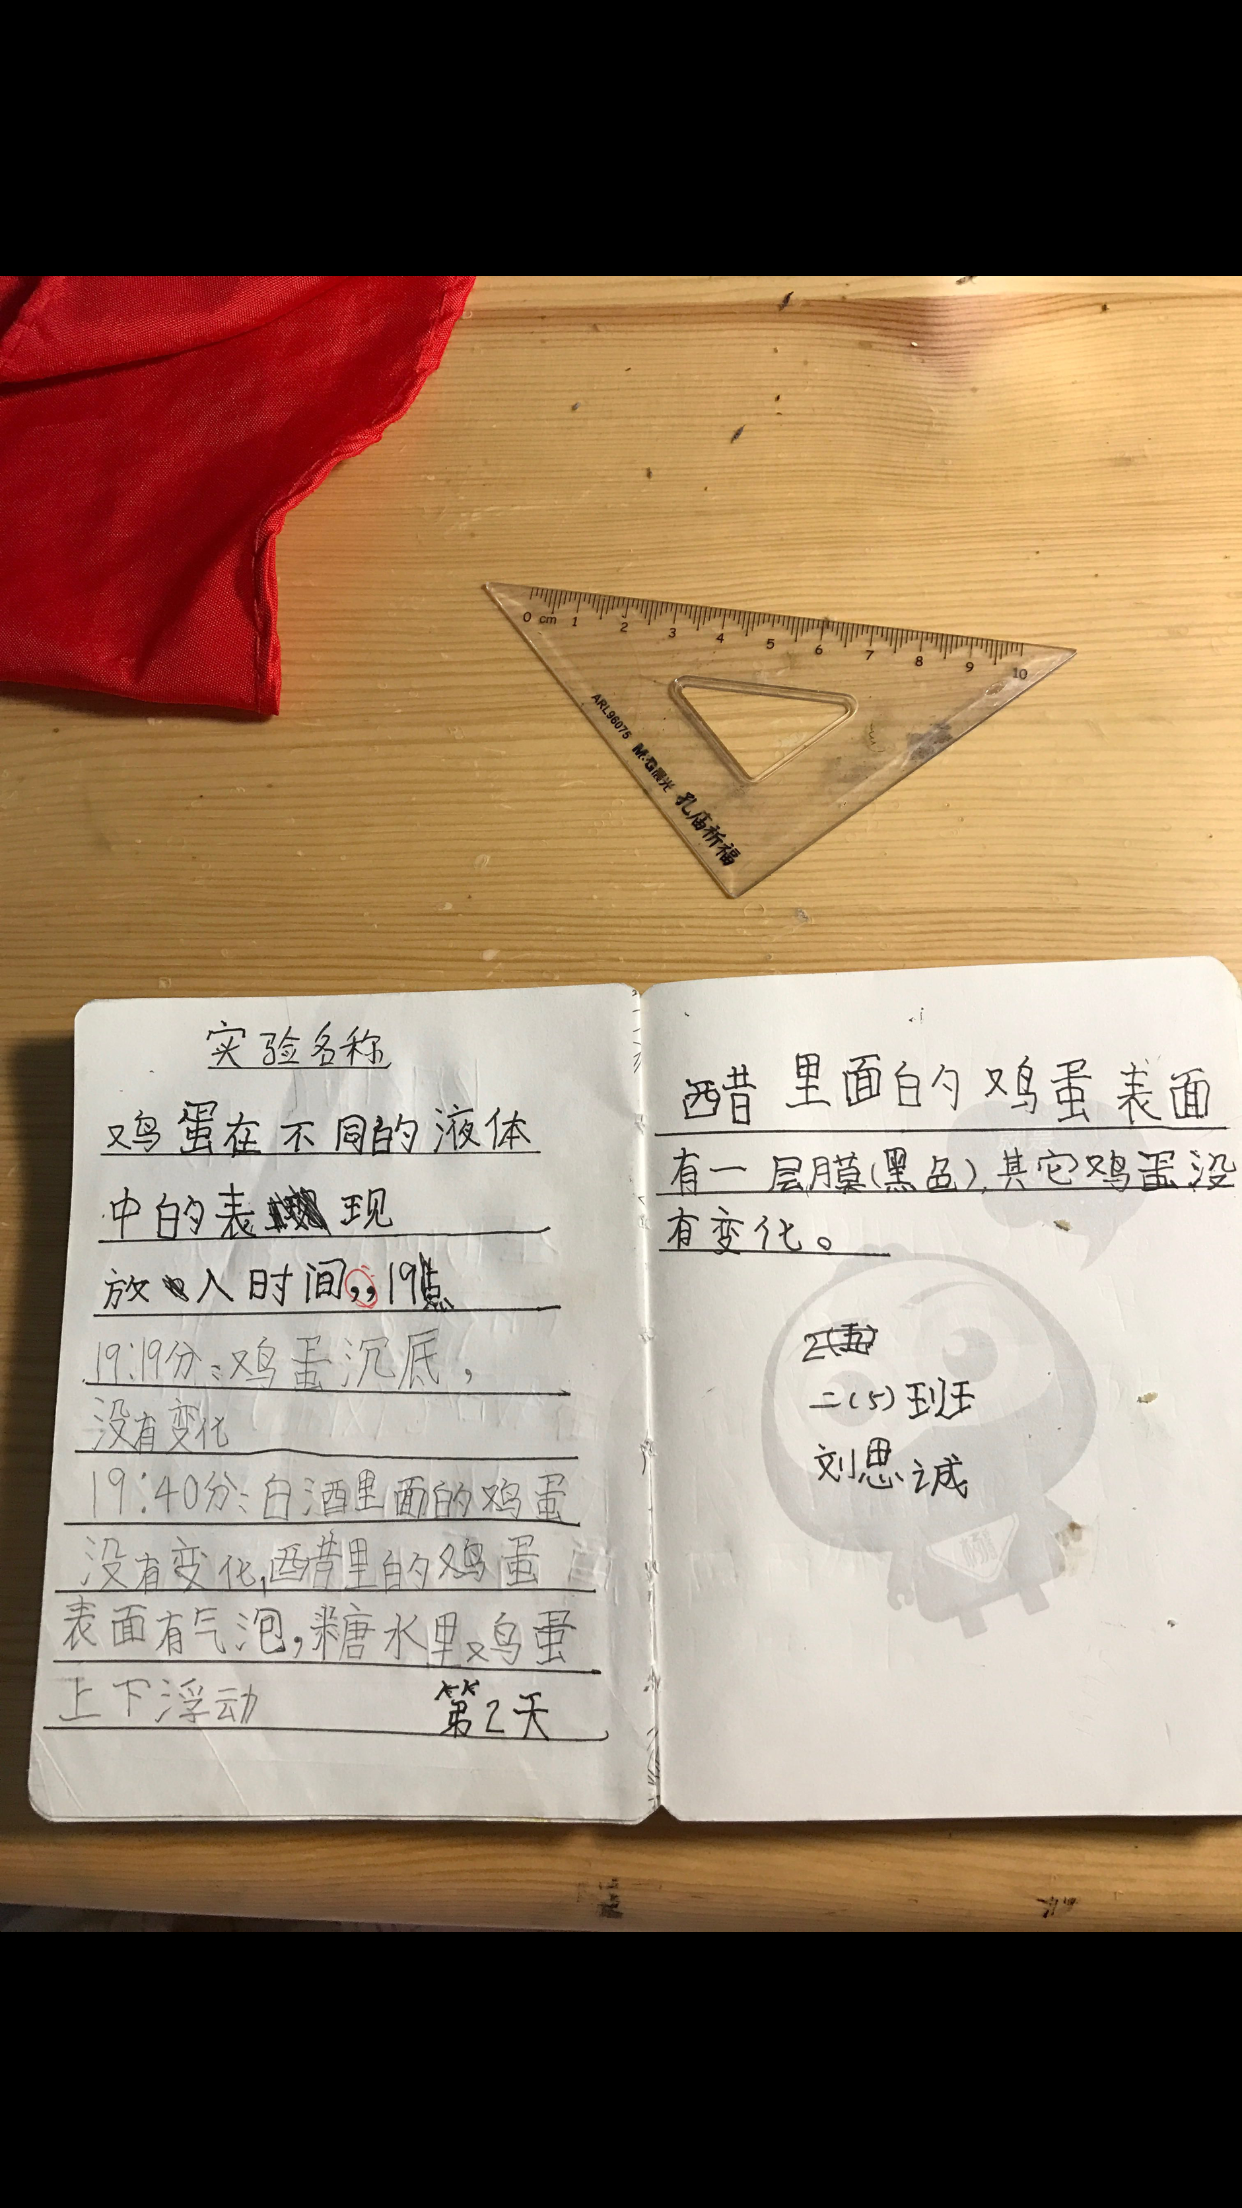 0 cm 1 2 3 4 5 6 7 8 9 10
ARL96075 M&G晨光 孔庙祈福
实验名称
鸡蛋在不同的液体
中的表现
放入时间,,19点
19:19分:鸡蛋沉底,
没有变化
19:40分:白酒里面的鸡蛋
没有变化,醋里的鸡蛋
表面有气泡,糖水里鸡蛋
上下浮动 第2天
醋里面的鸡蛋表面
有一层膜(黑色),其它鸡蛋没
有变化。
二(5)班
刘思诚